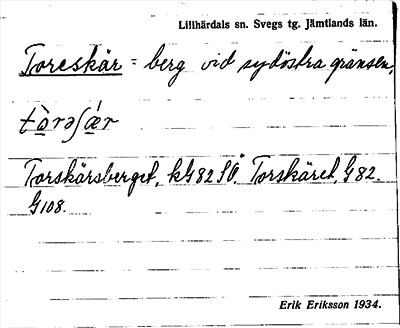 Lillhärdals sn. Svegs tg. Jämtlands län.
Toreskär = berg vid sydöstra gränsen,
tòrəʃǽr
Torskärsberget, kG82SÖ. Torskäret, G82.
G108.
Erik Eriksson 1934.